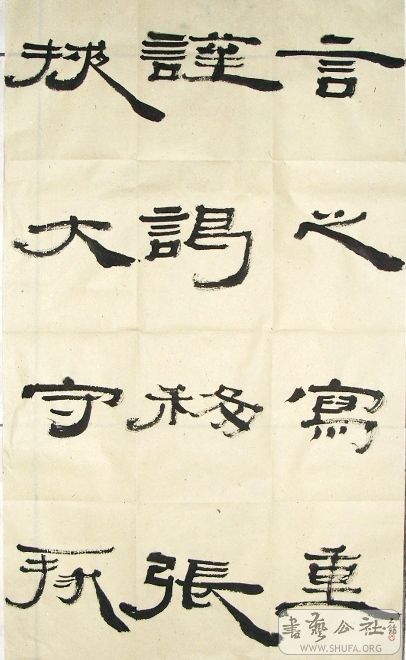 言之寫重
謹謁移張
掖大守
書藝公社
WWW.SHUFA.ORG